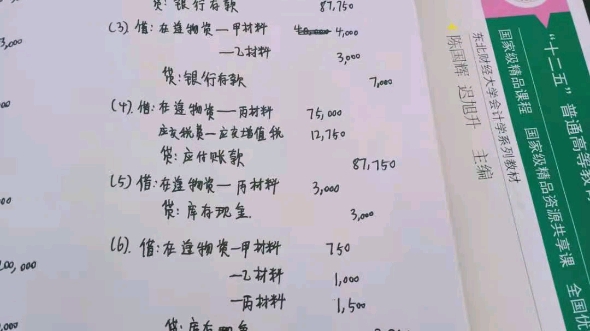 贷:银行存款 87,750
(3) 借:在途物资—甲材料 4,000
—乙材料 3,000
贷:银行存款 7,000
(4). 借:在途物资—丙材料 75,000
应交税费—应交增值税 12,750
贷:应付账款 87,750
(5) 借:在途物资—丙材料 3,000
贷:库存现金. 3,000
(6). 借:在途物资—甲材料 750
—乙材料 1,000
—丙材料 1,500
贷:库存现金
3,000
00
00
00,000
.000
"十二五"普通高等教
国家级精品课程 国家级精品资源共享课 全国优
东北财经大学会计学系列教材
陈国辉 迟旭升 主编